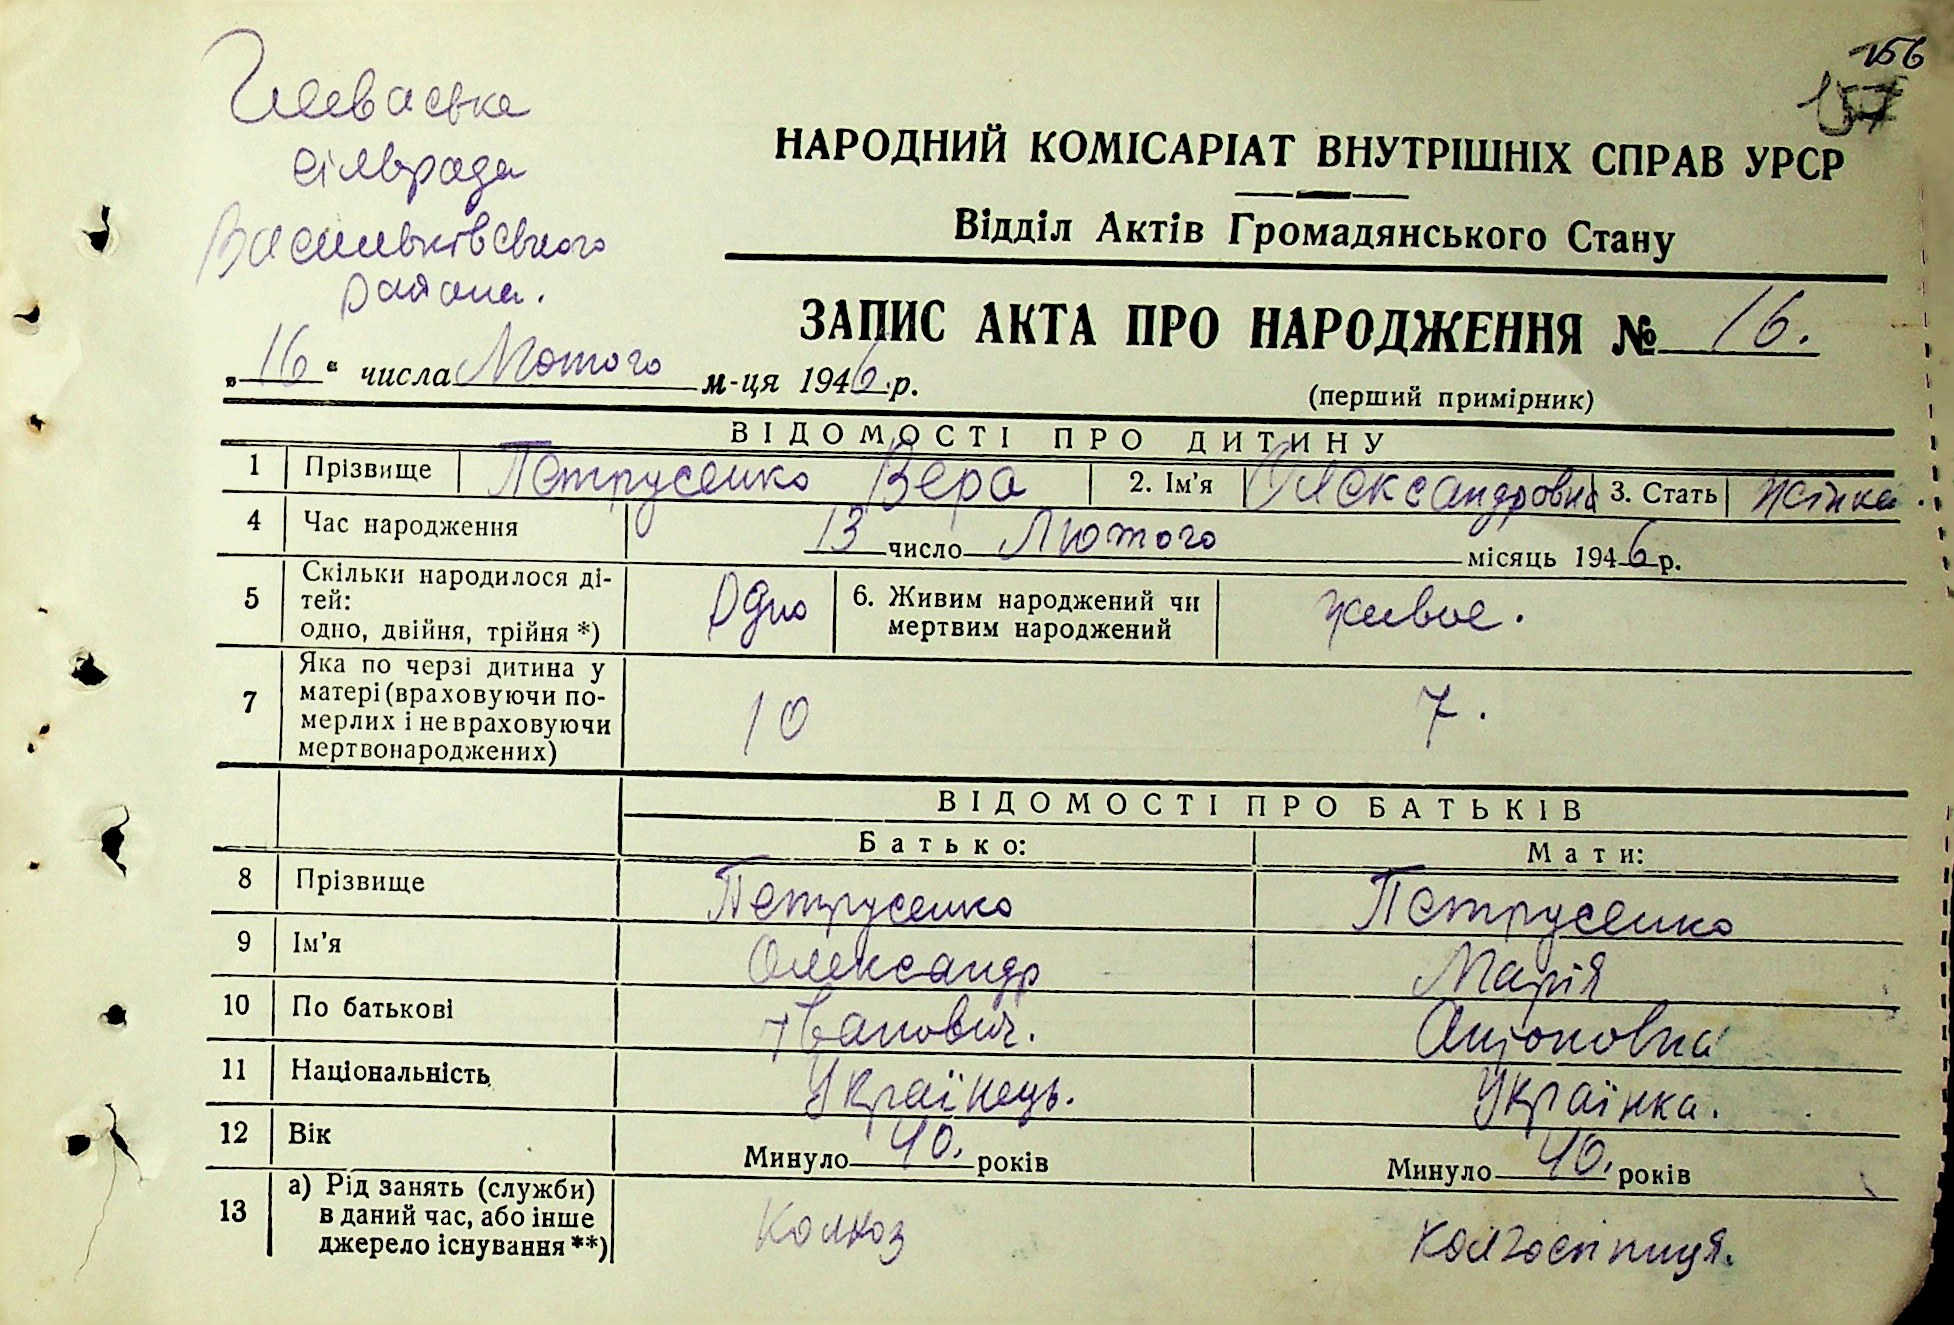 156
157
Глеваська
сільрада
Васильківського
района.
НАРОДНИЙ КОМІСАРІАТ ВНУТРІШНІХ СПРАВ УРСР
Відділ Актів Громадянського Стану
ЗАПИС АКТА ПРО НАРОДЖЕННЯ № 16.
„16“ числа Лютого м-ця 1946.р.
(перший примірник)
ВІДОМОСТІ ПРО ДИТИНУ
1 Прізвище Петрусенко Вера 2. Ім’я Олександровна 3. Стать жінка.
4 Час народження 13 число Лютого місяць 1946 р.
5 Скільки народилося ді-
тей:
одно, двійня, трійня *) Одно 6. Живим народжений чи
мертвим народжений живое.
7 Яка по черзі дитина у
матері (враховуючи по-
мерлих і не враховуючи
мертвонароджених) 10 7.
ВІДОМОСТІ ПРО БАТЬКІВ
Батько: Мати:
8 Прізвище Петрусенко Петрусенко
9 Ім’я Олександр Марія
10 По батькові Іванович. Антоновна
11 Національність Українець. Українка.
12 Вік Минуло 40. років Минуло 40. років
13 а) Рід занять (служби)
в даний час, або інше
джерело існування **) Колхоз колгоспниця.